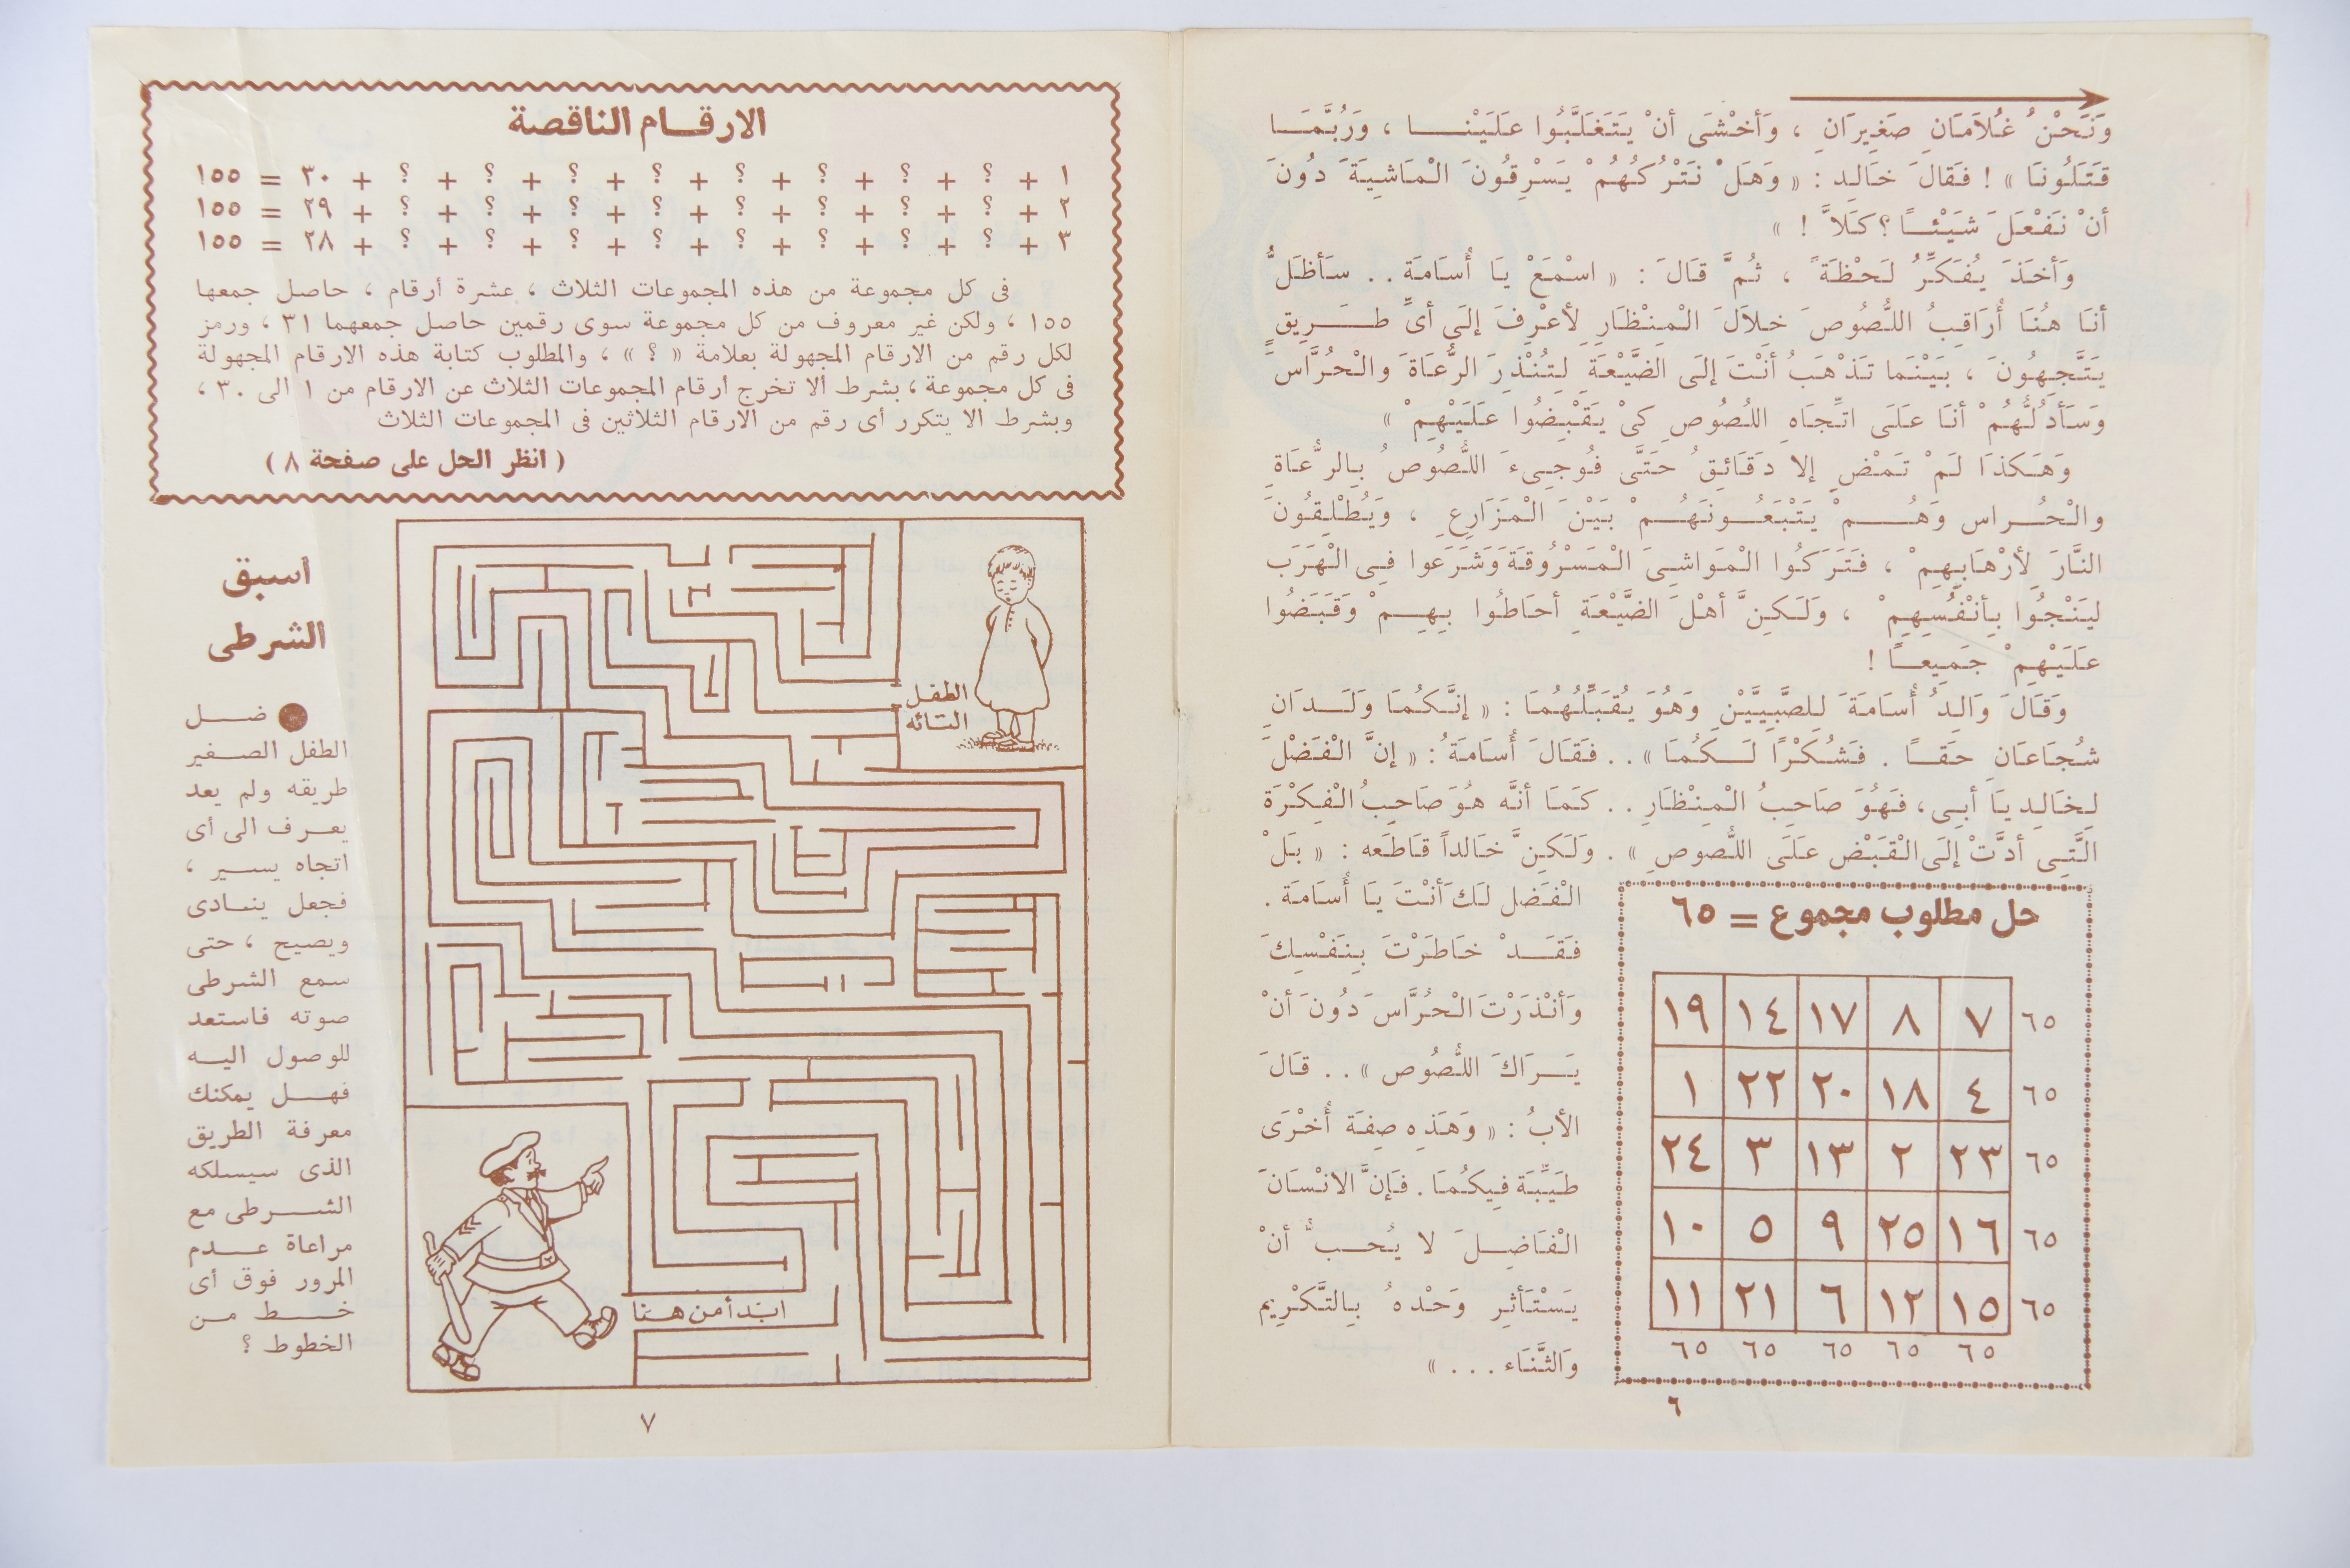 وَنَحْنُ غُلَامَانِ صَغِيرَانِ ، وَأَخْشَى أنْ يَتَغَلَّبُوا عَلَيْنَــا ، وَرُبَّمَـا
قَتَلُونَا » ! فَقَالَ خَالِد : « وَهَلْ نَتْرُكُهُمْ يَسْرِقُونَ الْمَاشِيَةَ دُونَ
أنْ نَفْعَلَ شَيْئًـا ؟ كَلاَّ ! »
وَأَخَذَ يُفَكِّرُ لَحْظَةً ، ثُمَّ قَالَ : « اسْمَعْ يَا أُسَامَة . . سَأَظَلُّ
أنَا هُنَا أُرَاقِبُ اللُّصُوصَ خِلاَلَ الْمِنْظَارِ لِأعْرِفَ إلَى أىِّ طَــرِيقٍ
يَتَّجِهُونَ ، بَيْنَمَا تَذْهَبُ أنْتَ إلَى الضَّيْعَةِ لِتُنْذِرَ الرُّعَاةَ والْحُرَّاسَ
وَسَأَدُلُّهُمْ أنَا عَلَى اتِّجَاهِ اللُصُوصِ كىْ يَقْبِضُوا عَلَيْهِمْ »
وَهَكذَا لَمْ تَمْضِ إلا دَقَائِقُ حَتَّى فُوجِىءَ اللُّصُوصُ بِالرُّعَاةِ
والْحُــراس وَهُــمْ يَتْبَعُــونَهُــمْ بَيْنَ الْمَزَارِعِ ، وَيُطْلِقُونَ
النَّارَ لِأرْهَابِهِمْ ، فَتَرَكُوا الْمَوَاشِىَ الْمَسْرُوقَةَ وَشَرَعوا فِى الْهَرَب
لِيَنْجُوا بِأنْفُسِهِمْ ، وَلَكِنَّ أهْلَ الضَّيْعَةِ أحَاطُوا بِهِــمْ وَقَبَضُوا
عَلَيْهِمْ جَمِيعــًا !
وَقَالَ وَالِدُ أُسَامَةَ لِلصَّبِيَّيْنِ وَهُوَ يُقَبِّلُهُمَا : « إنَّكُمَا وَلَــدَانِ
شُجَاعَانِ حَقــًا . فَشُكْرًا لَــكُمَا » . . فَقَالَ أُسَامَةُ : « إنَّ الْفَضْلَ
لِخَالِد يَا أبِى ، فَهُوَ صَاحِبُ الْمِنْظَارِ . . كَمَا أنَّه هُوَ صَاحِبُ الْفِكْرَة
الَّتِى أدَّتْ إلَى الْقَبْض عَلَى اللُّصُوصِ » . وَلَكِنَّ خَالداً قَاطَعه : « بَلْ
الْفَضل لَكَ أنْتَ يَا أُسَامَة .
فَقَــدْ خَاطَرْتَ بِنَفْسِكَ
وَأنْذَرْتَ الْحُرَّاسَ دُونَ أنْ
يَــرَاكَ اللُّصُوص » . . قَالَ
الأبُ : « وَهَذِه صِفَة أُخْرَى
طَيِّبَة فِيكُمَا . فَإنَّ الانْسَانَ
الْفَاضِــلَ لا يُحــبُّ أنْ
يَسْتَأثِر وَحْدهُ بِالتَّكْرِيمْ
وَالثَّنَاء . . . »
حل مطلوب مجموع = ٦٥
١٩ ١٤ ١٧ ٨ ٧ ٦٥
١ ٢٢ ٢٠ ١٨ ٤ ٦٥
٢٤ ٣ ١٣ ٢ ٢٣ ٦٥
١٠ ٥ ٩ ٢٥ ١٦ ٦٥
١١ ٢١ ٦ ١٢ ١٥ ٦٥
٦٥ ٦٥ ٦٥ ٦٥ ٦٥
٦
الارقــام الناقصة
١ + ؟ + ؟ + ؟ + ؟ + ؟ + ؟ + ؟ + ؟ + ٣٠ = ١٥٥
٢ + ؟ + ؟ + ؟ + ؟ + ؟ + ؟ + ؟ + ؟ + ٢٩ = ١٥٥
٣ + ؟ + ؟ + ؟ + ؟ + ؟ + ؟ + ؟ + ؟ + ٢٨ = ١٥٥
فى كل مجموعة من هذه المجموعات الثلاث ، عشرة أرقام ، حاصل جمعها
١٥٥ ، ولكن غير معروف من كل مجموعة سوى رقمين حاصل جمعهما ٣١ ، ورمز
لكل رقم من الارقام المجهولة بعلامة « ؟ » ، والمطلوب كتابة هذه الارقام المجهولة
فى كل مجموعة ، بشرط ألا تخرج أرقام المجموعات الثلاث عن الارقام من ١ الى ٣٠ ،
وبشرط الا يتكرر أى رقم من الارقام الثلاثين فى المجموعات الثلاث
( انظر الحل على صفحة ٨ )
اسبق
الشرطى
ضــل
الطفل الصـغير
طريقه ولم يعد
يعــرف الى أى
اتجاه يســير ،
فجعل ينــادى
ويصيح ، حتى
سمع الشرطى
صوته فاستعد
للوصول اليــه
فهــل يمكنك
معرفة الطريق
الذى سيسلكه
الشــرطى مع
مراعاة عــدم
المرور فوق أى
خــط مــن
الخطوط ؟
الطفل
التائه
ابتدأ من هنا
٧